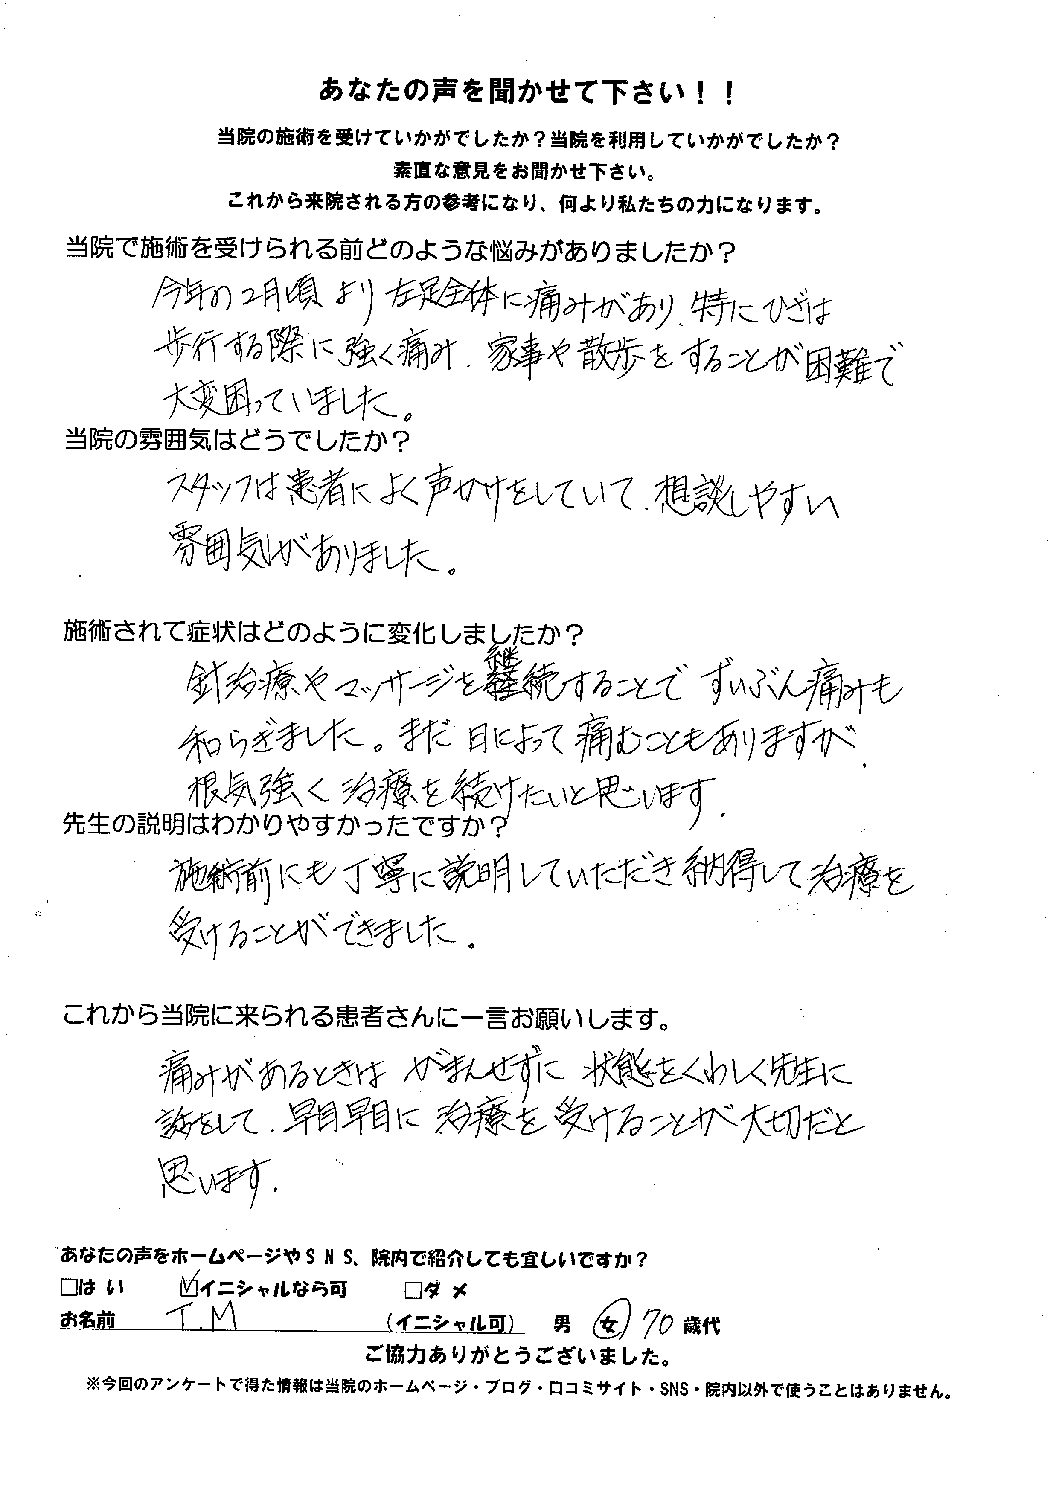 あなたの声を聞かせて下さい！！
当院の施術を受けていかがでしたか？当院を利用していかがでしたか？
素直な意見をお聞かせ下さい。
これから来院される方の参考になり、何より私たちの力になります。
当院で施術を受けられる前どのような悩みがありましたか？
今年の2月頃より左足全体に痛みがあり、特にひざは
歩行する際に強く痛み、家事や散歩をすることが困難で
大変困っていました。
当院の雰囲気はどうでしたか？
スタッフは患者によく声かけをしていて、相談しやすい
雰囲気がありました。
施術されて症状はどのように変化しましたか？
針治療やマッサージを継続することでずいぶん痛みも
和らぎました。まだ日によって痛むこともありますが、
根気強く治療を続けたいと思います。
先生の説明はわかりやすかったですか？
施術前にも丁寧に説明していただき納得して治療を
受けることができました。
これから当院に来られる患者さんに一言お願いします。
痛みがあるときはがまんせずに状態をくわしく先生に
話をして、早目早目に治療を受けることが大切だと
思います。
あなたの声をホームページやSNS、院内で紹介しても宜しいですか？
□はい ☑イニシャルなら可 □ダメ
お名前 T.M (イニシャル可) 男 女 70歳代
ご協力ありがとうございました。
※今回のアンケートで得た情報は当院のホームページ・ブログ・口コミサイト・SNS・院内以外で使うことはありません。